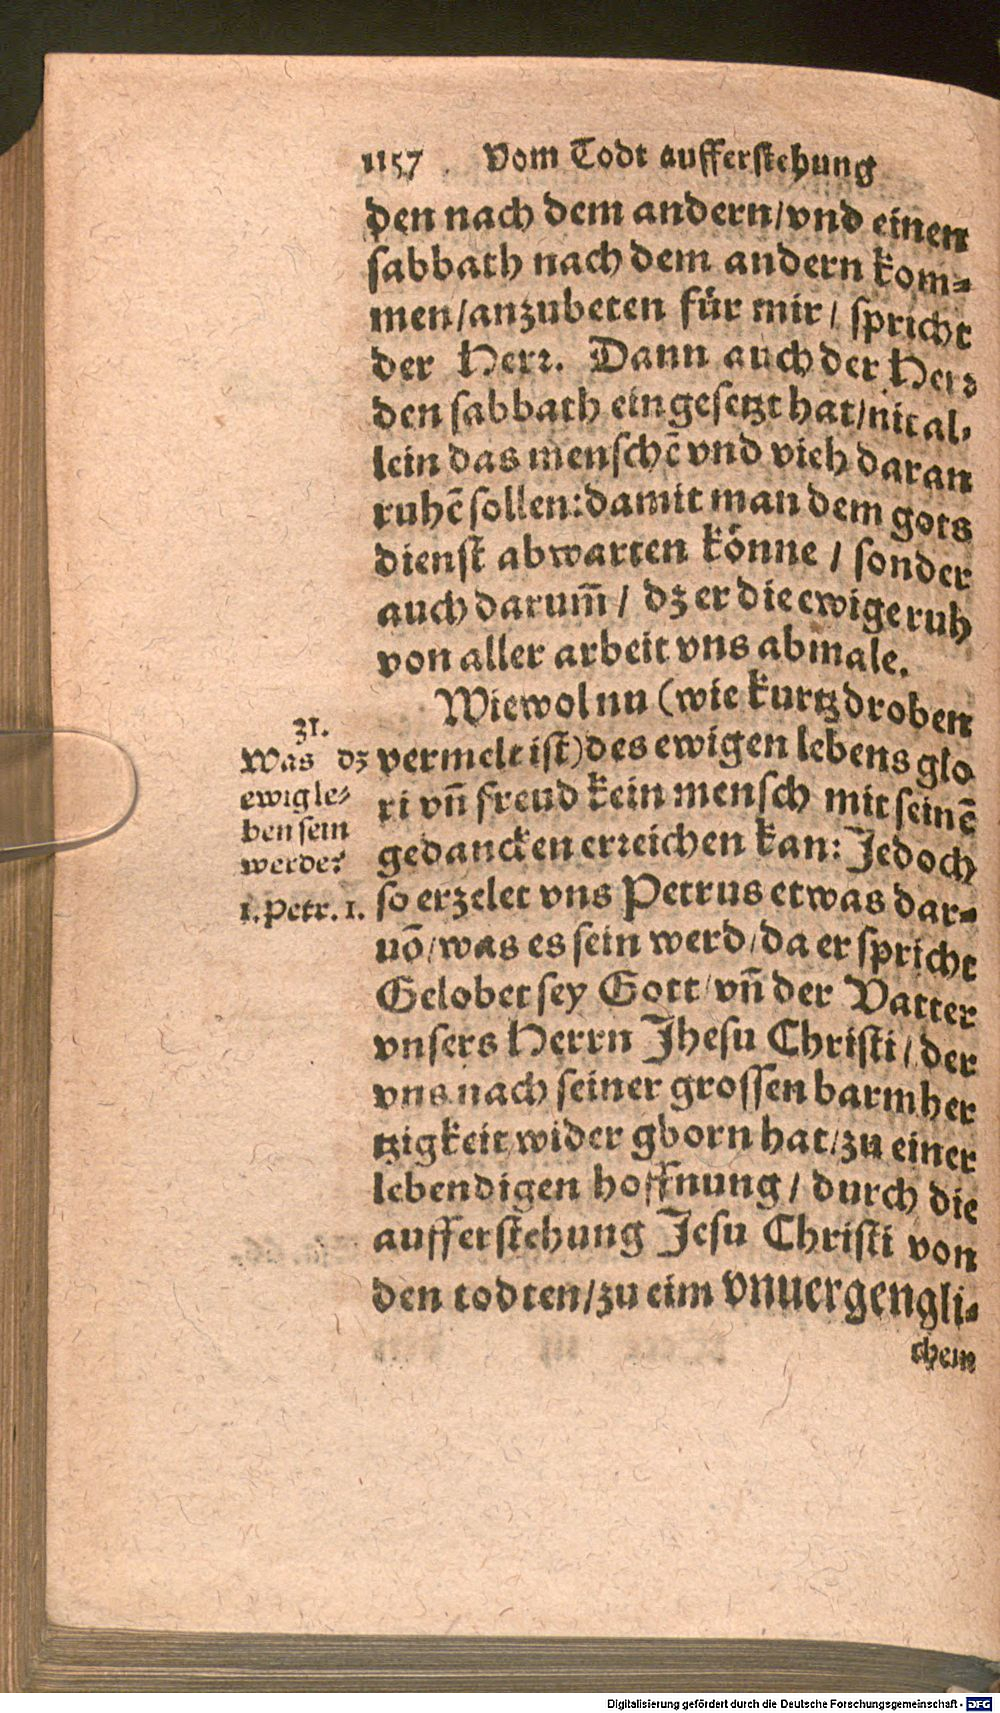 1157 Vom Todt aufferstehung
den nach dem andern/vnd einen
sabbath nach dem andern kom-
men/anzubeten für mir/ spricht
der Herr. Dann auch der Herr
den sabbath eingesetzt hat/nit al-
lein das menschē vnd vieh daran
ruhē sollen: damit man dem gots
dienst abwarten könne / sonder
auch darum̄ / dz er die ewige ruh
von aller arbeit vns abmale.
Wiewol nu (wie kurtz droben
vermelt ist) des ewigen lebens glo
ri vn̄ freud kein mensch mit seinē
gedancken erreichen kan: Jedoch
so erzelet vns Petrus etwas dar-
uō/was es sein werd/da er spricht
Gelobet sey Gott/vn̄ der Vatter
vnsers Herrn Jhesu Christi/ der
vns nach seiner grossen barmher
tzigkeit wider gborn hat/zu einer
lebendigen hoffnung / durch die
aufferstehung Jesu Christi von
den todten/zu eim vnuergengli-
chem
31.
Was dz
ewig le-
ben sein
werde?
1. Petr. 1.
Digitalisierung gefördert durch die Deutsche Forschungsgemeinschaft - DFG